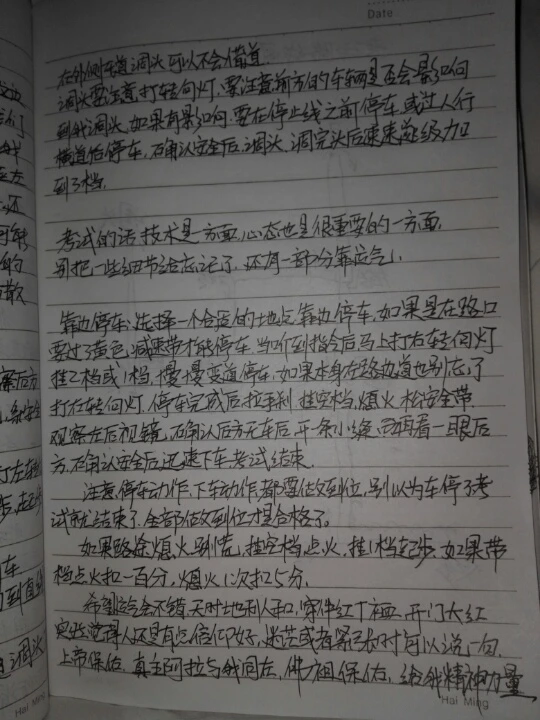 Date
在外侧车道调头可以不会借道
调头要注意打转向灯.要注意前方的车辆是否会影响
到我调头.如果有影响.要在停止线之前停车或过人行
横道后停车.确认安全后.调头.调完头后速速超级加
到3档.
考试的话技术是一方面.心态也是很重要的一方面.
别把一些细节给忘记了.还有一部分靠运气.
靠边停车:选择一个合适的地点靠边停车.如果是在路口
要过了黄色减速带才能停车.当听到指令后马上打右转向灯
挂2档或1档.慢慢变道停车.如果本身在路边道也别忘了
打右转向灯.停车完成后拉手刹.挂空档.熄火.松安全带.
观察左后视镜.确认后方无车后.开条小缝.再看一眼后
方.确认安全后迅速下车.考试结束.
注意.停车动作.下车动作.都要做到位.别以为车停了考
试就结束了.全部做到位才是合格了.
如果路途熄火别慌.挂空档点火.挂1档起步.如果带
档点火扣一百分.熄火1次扣5分.
希望运气会不错.天时地利人和.开门大红
觉得人还是有点信仰好.迷茫或者紧张时可以说一句.
上帝保佑.真主阿拉与我同在.佛祖保佑.给我精神力量.
Hai Ming
Hai Ming